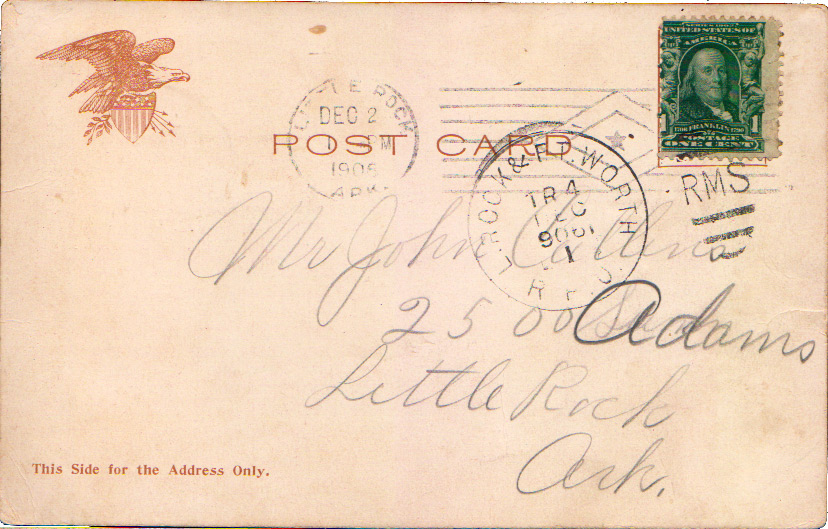 SERIES 1902
UNITED STATES OF
AMERICA
1706 FRANKLIN 1790
POSTAGE
1 ONE CENT 1
LITTLE ROCK
DEC 2
PM
1906
ARK.
POST CARD
L. ROCK & FT. WORTH
TR 4
DEC
1
R.P.O.
RMS
Mr John
2500 Adams
Little Rock
Ark.
This Side for the Address Only.